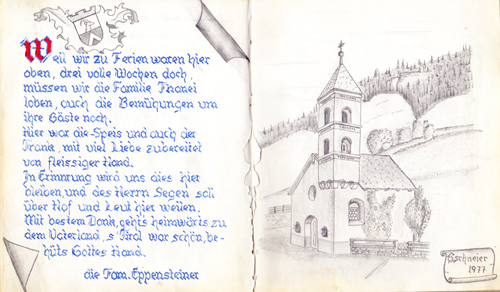 Weil wir zu Ferien waren hier
oben, drei volle Wochen doch,
müssen wir die Familie Thanei
loben, auch die Bemühungen um
ihre Gäste noch.
Hier war die Speis und auch der
Trank, mit viel Liebe zubereitet
von fleissiger Hand.
In Erinnrung wird uns dies hier
bleiben, und des Herrn Segen soll
über Hof und Leut hier weilen.
Mit bestem Dank, gehts heimwärts zu
dem Vaterland, s'Tirol war schön, be-
hüts Gottes Hand.
die Fam. Eppensteiner
1977